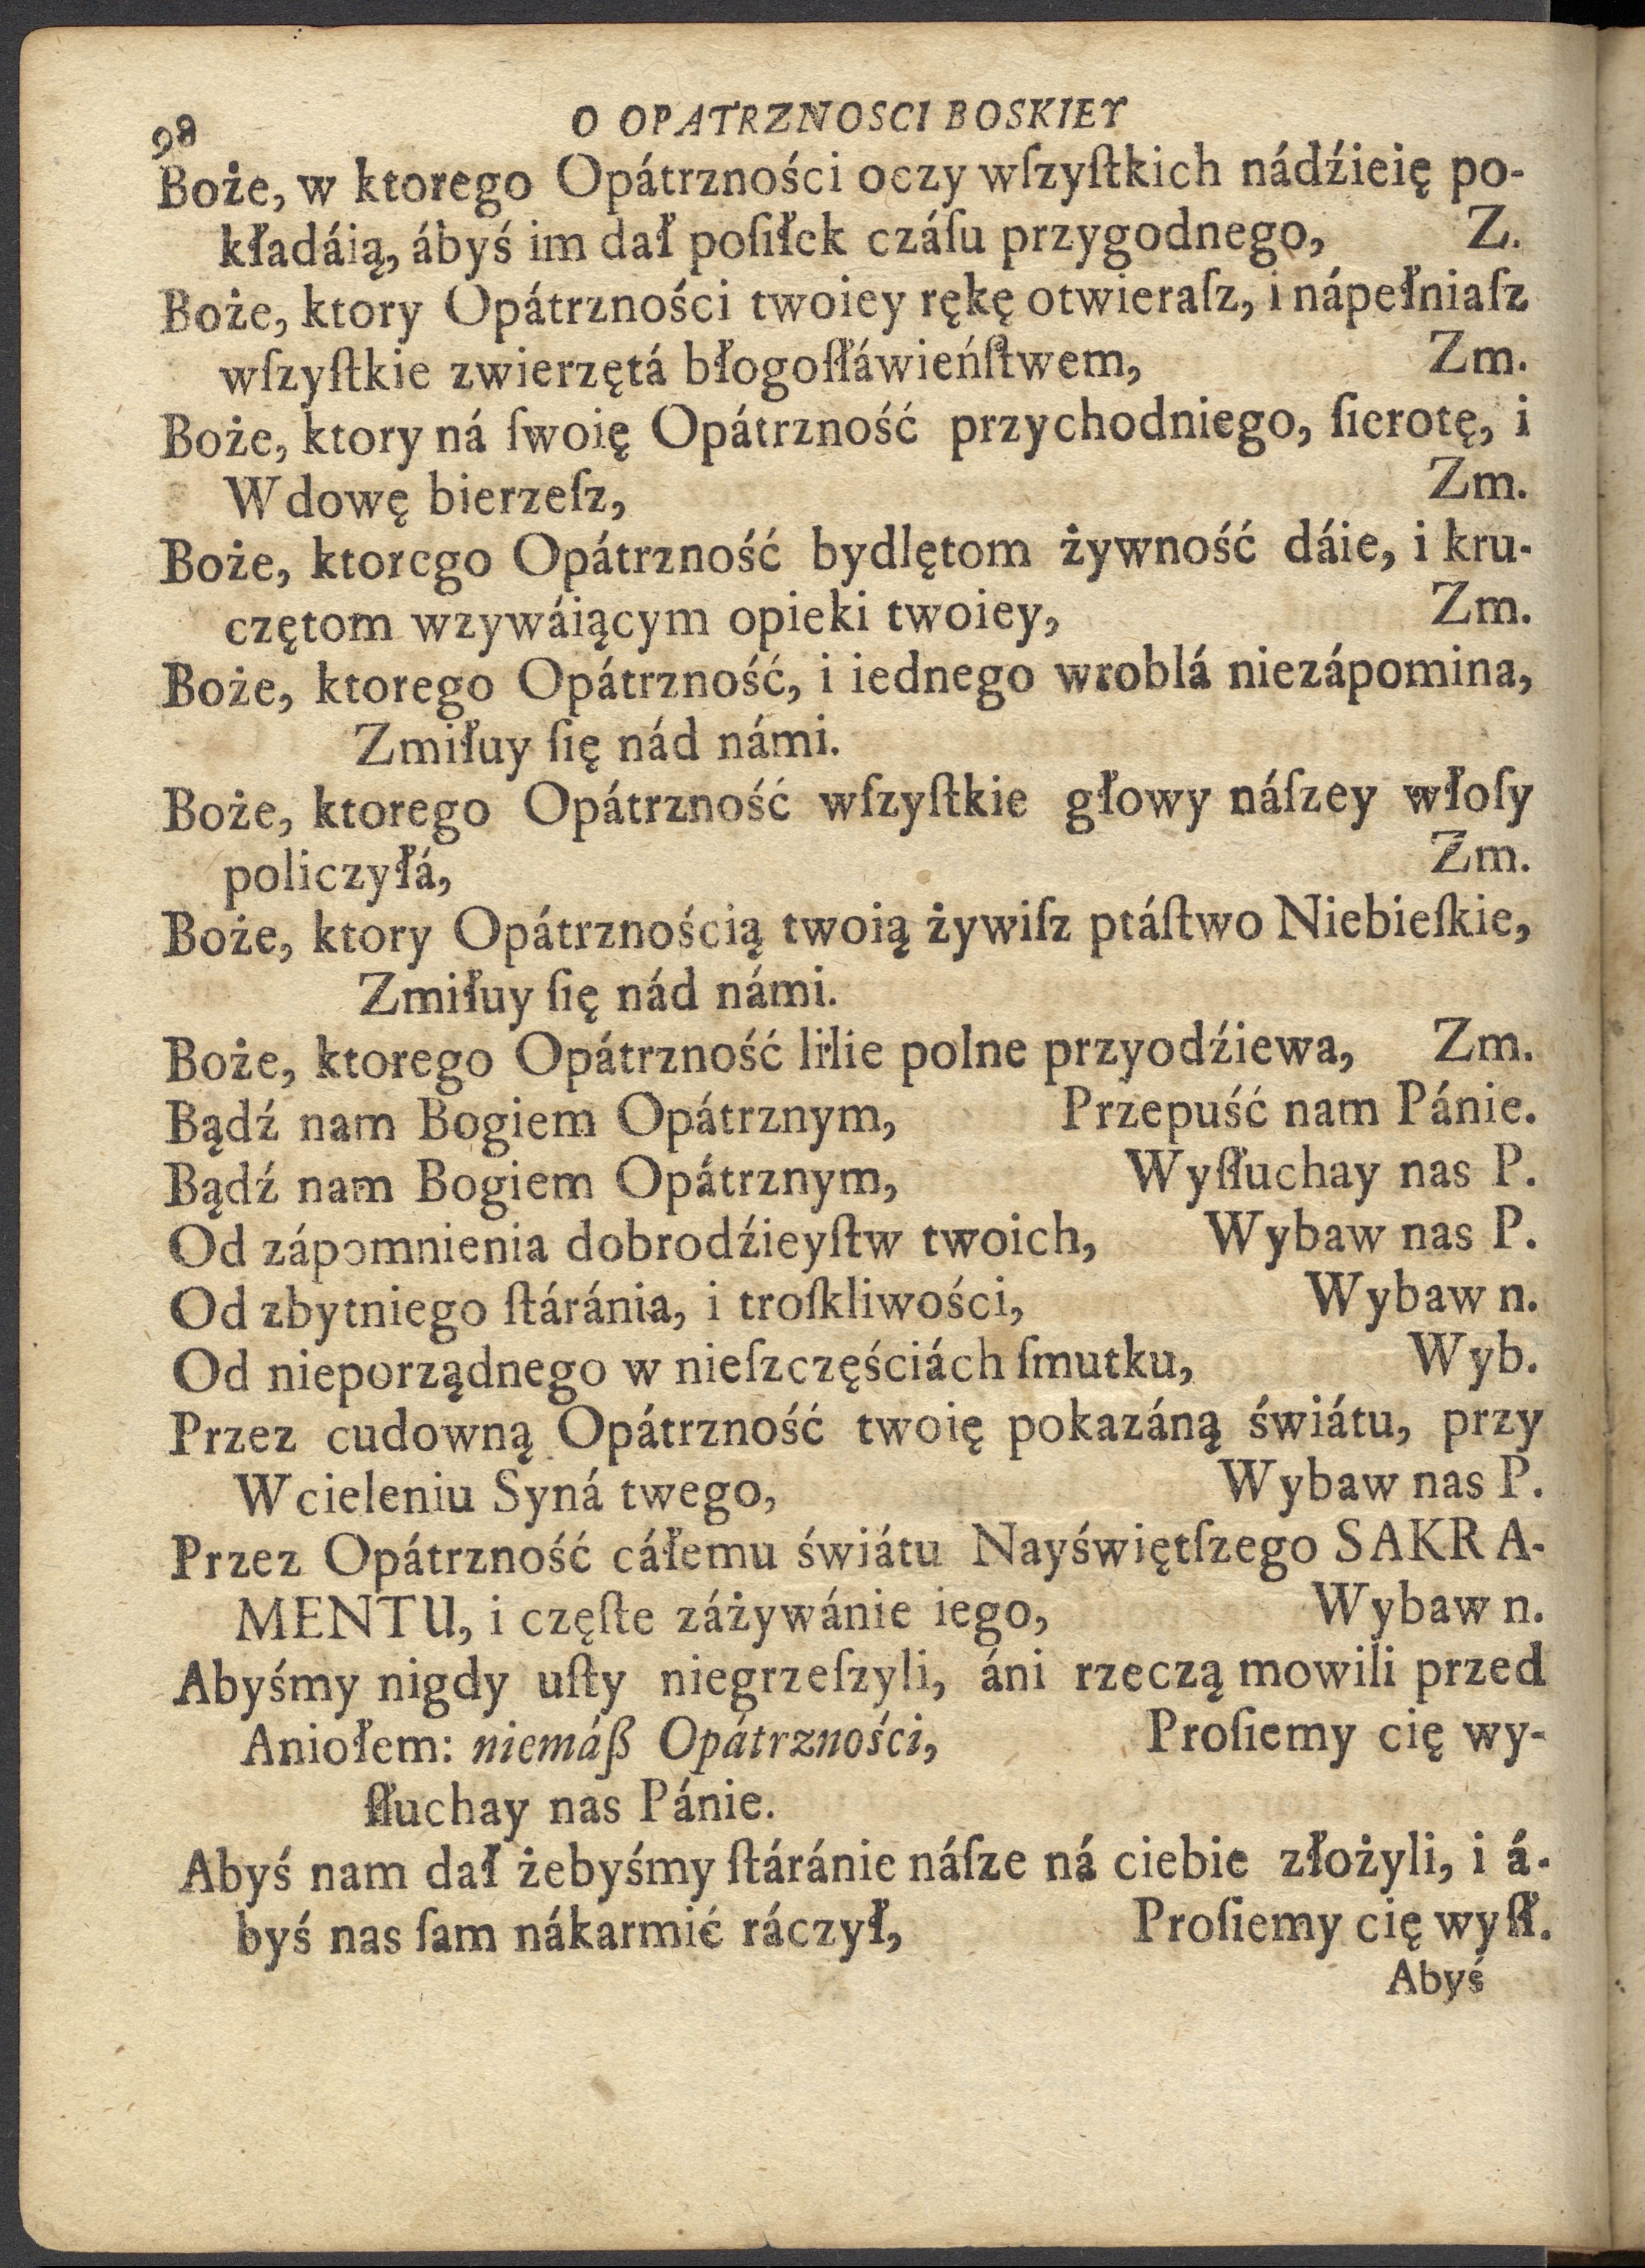 98 O OPATRZNOSCI BOSKIEY
Boże, w ktorego Opátrzności oczy wſzyſtkich nádźieię po-
kładáią, ábyś im dał poſiłek czáſu przygodnego, Z.
Boże, ktory Opátrzności twoiey rękę otwieraſz, i nápełniaſz
wſzyſtkie zwierzętá błogoſłáwieńſtwem, Zm.
Boże, ktory ná ſwoię Opátrzność przychodniego, ſierotę, i
Wdowę bierzeſz, Zm.
Boże, ktorego Opátrzność bydlętom żywność dáie, i kru-
czętom wzywáiącym opieki twoiey, Zm.
Boże, ktorego Opátrzność, i iednego wroblá niezápomina,
Zmiłuy ſię nád námi.
Boże, ktorego Opátrzność wſzyſtkie głowy náſzey włoſy
policzyłá, Zm.
Boże, ktory Opátrznością twoią żywiſz ptáſtwo Niebieſkie,
Zmiłuy ſię nád námi.
Boże, ktorego Opátrzność lilie polne przyodźiewa, Zm.
Bądź nam Bogiem Opátrznym, Przepuść nam Pánie.
Bądź nam Bogiem Opátrznym, Wyſłuchay nas P.
Od zápomnienia dobrodźieyſtw twoich, Wybaw nas P.
Od zbytniego ſtáránia, i troſkliwości, Wybaw n.
Od nieporządnego w nieſzczęściách ſmutku, Wyb.
Przez cudowną Opátrzność twoię pokazáną świátu, przy
Wcieleniu Syná twego, Wybaw nas P.
Przez Opátrzność cáłemu świátu Nayświętſzego SAKRA-
MENTU, i częſte záżywánie iego, Wybaw n.
Abyśmy nigdy uſty niegrzeſzyli, áni rzeczą mowili przed
Aniołem: niemáß Opátrzności, Proſiemy cię wy-
ſłuchay nas Pánie.
Abyś nam dał żebyśmy ſtáránie náſze ná ciebie złożyli, i á-
byś nas ſam nákarmić ráczył, Proſiemy cię wyſł.
Abyś